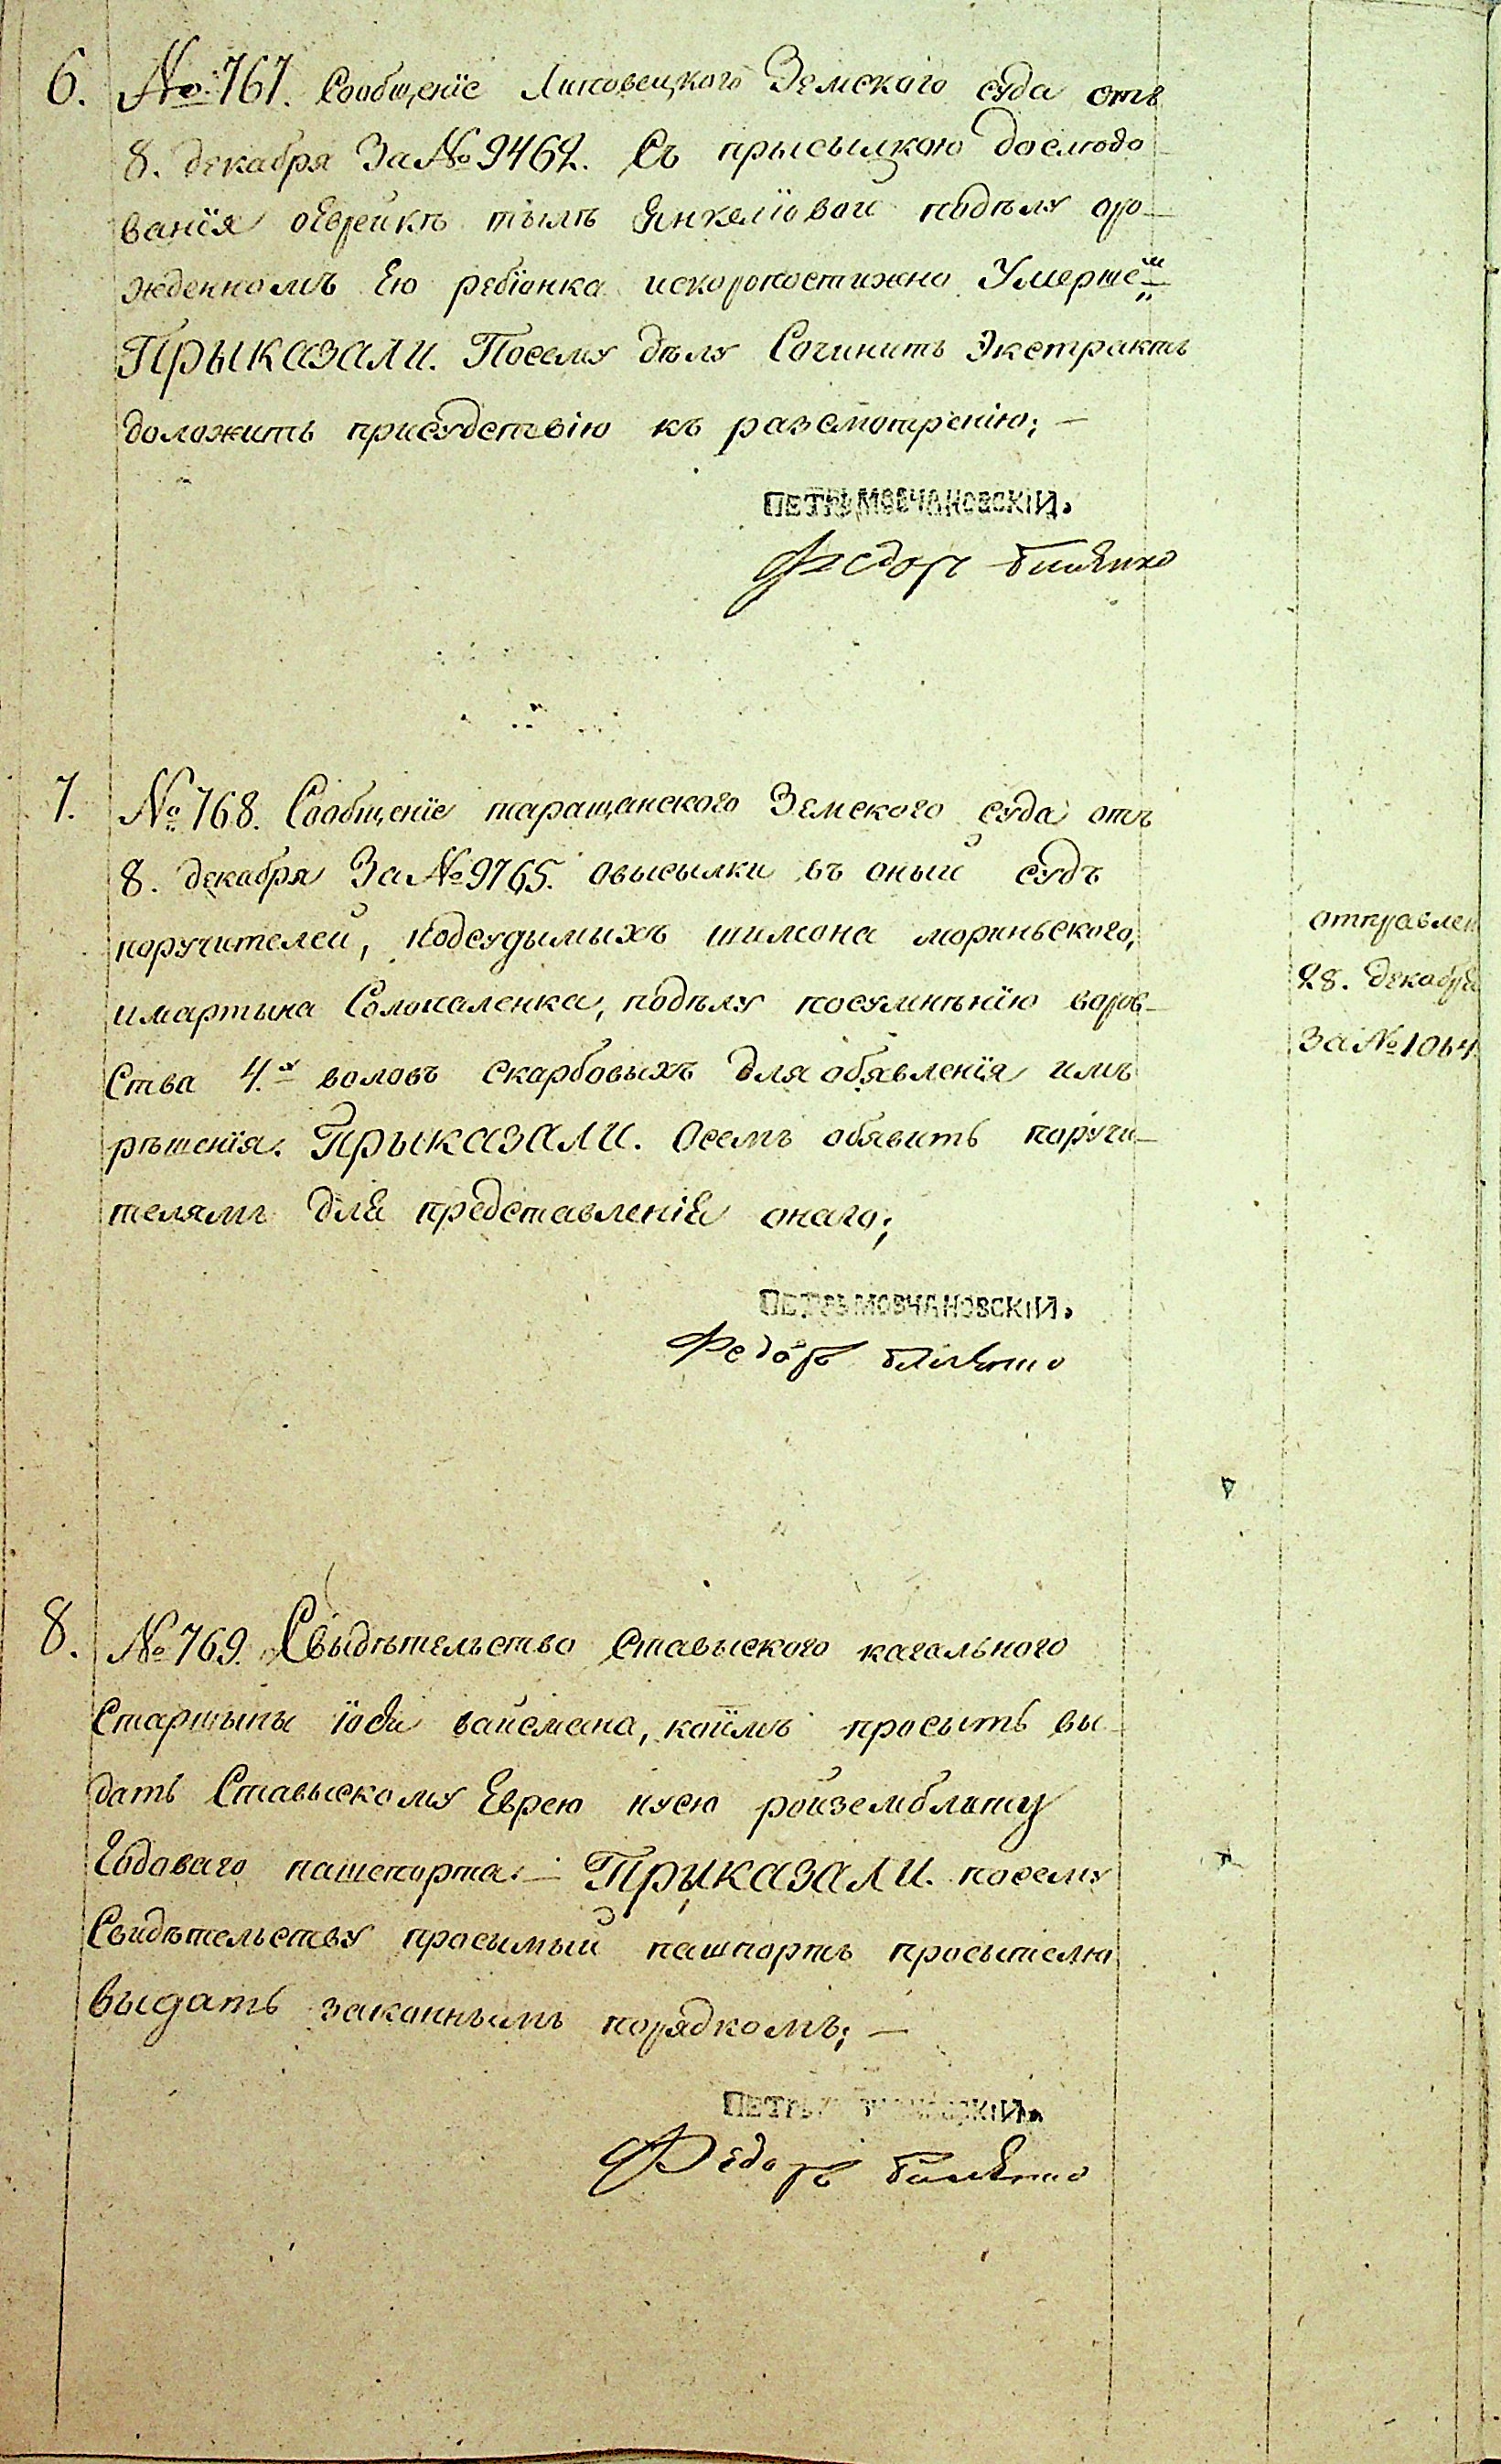 6. № 767. Сообщенїе Липовецкого Земского суда отъ
8. декабря За № 9462. Съ прысылкою дослюдо-
ванїя оеврейкѣ подѣлу оро-
жденномъ Ею ребіонка искоропостижно Умерше
ПРЫКАЗАЛИ. Посему дѣлу Сочинить Экстрактъ
доложить присудствію къ разсмотренію; —
ПЕТРЪ МОВЧАНОВСКІЙ.
Федоръ
7. № 768. Сообщенїе таращанского Земского суда отъ
8. декабря За № 9765. овысылки въ оный судъ
поручителей, подсудымыхъ шимона морыньского,
имартына Соломаленка, подѣлу посумнѣнїю воров-
Ства 4.х воловъ скарбовыхъ для обявленїя имъ
рѣшенїя. ПРЫКАЗАЛИ. Осемъ обявить поручи-
телямъ для представленія онаго;
отправлен
28. декабря
за № 1064
ПЕТРЪ МОВЧАНОВСКІЙ.
Федоръ
8. № 769. Свыдѣтельство Ставыского кагального
Старшыны вайсмана, коїмъ просыть вы-
дать Ставыскому Еврею нусю ройземблыту
Годоваго пашспорта. — ПРЫКАЗАЛИ. посему
Свидѣтельству просымый пашпортъ просытелю
выдать законнымъ порядкомъ; —
ПЕТРЪ МОВЧАНОВСКІЙ.
Федоръ